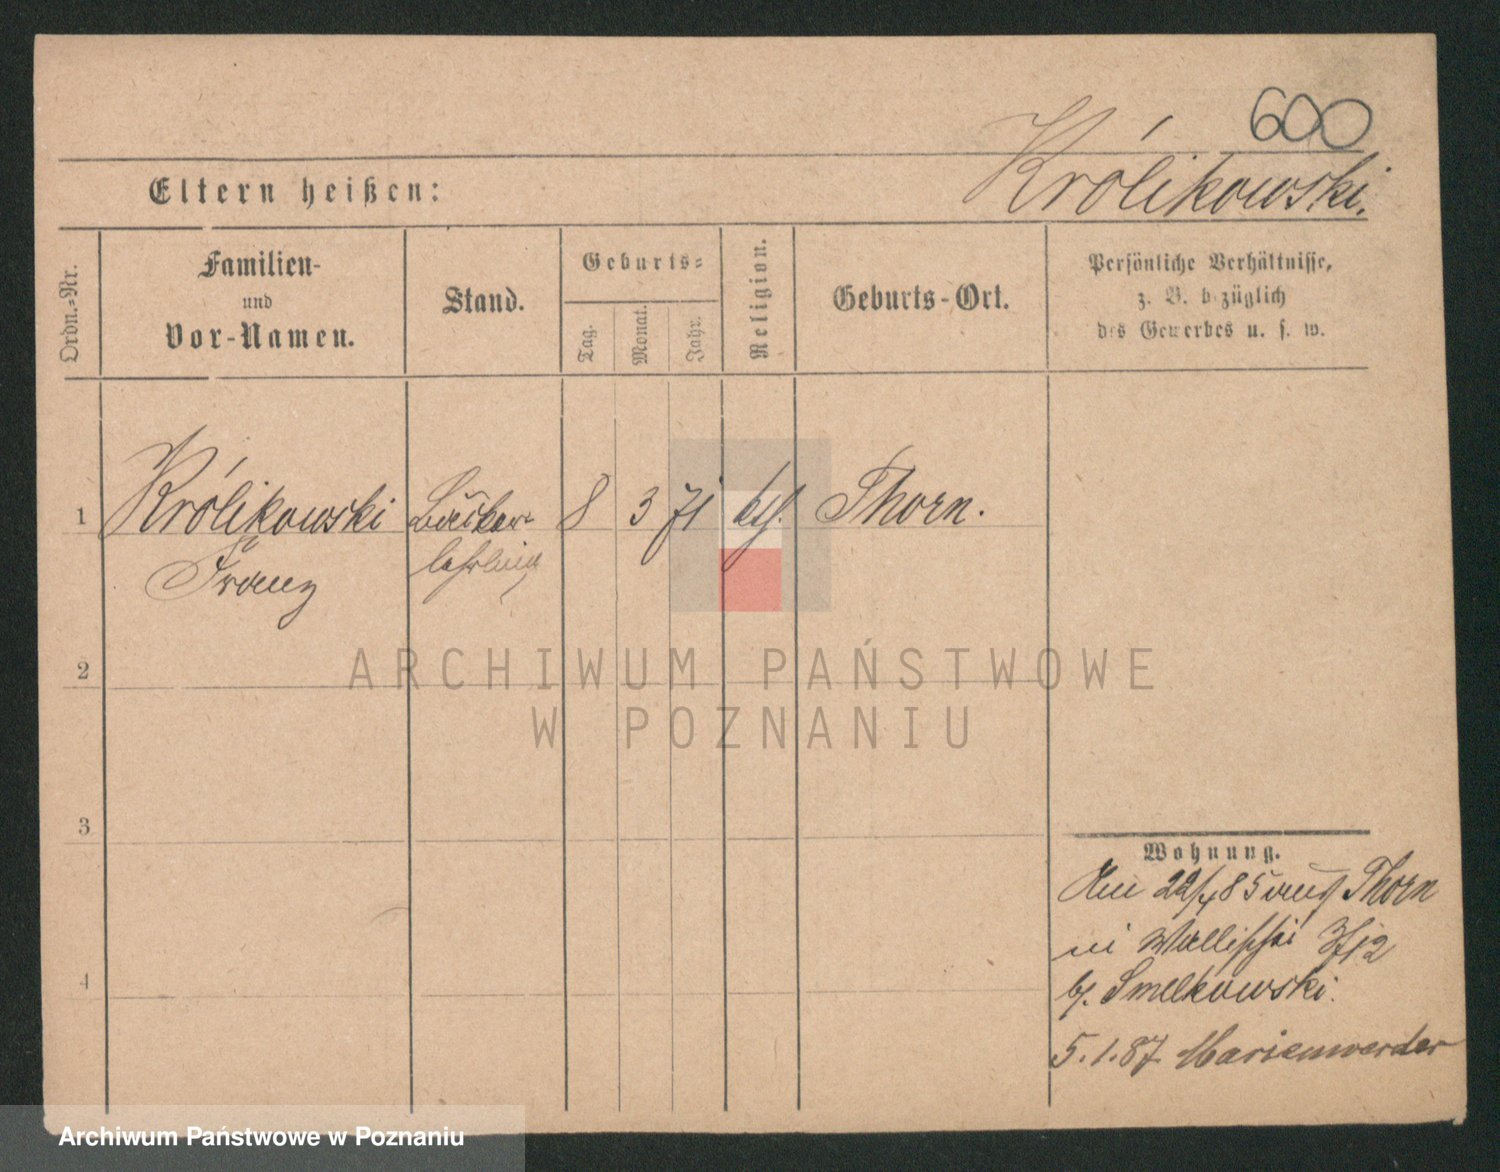 600
Królikowski.
Eltern heißen:
Ordn.-Nr.
Familien-
und
Vor-Namen.
Stand.
Geburts-
Tag.
Monat.
Jahr.
Religion.
Geburts-Ort.
Persönliche Verhältnisse,
z. B. bezüglich
des Gewerbes u. s. w.
1 Królikowski Bäcker- 8 3 71 kth. Thorn.
Franz lehrling
2
3
4
ARCHIWUM PAŃSTWOWE
W POZNANIU
Wohnung.
22/4 85 Thorn
Wallischei
b/. Smelkowski.
5.1.87 Marienwerder
Archiwum Państwowe w Poznaniu